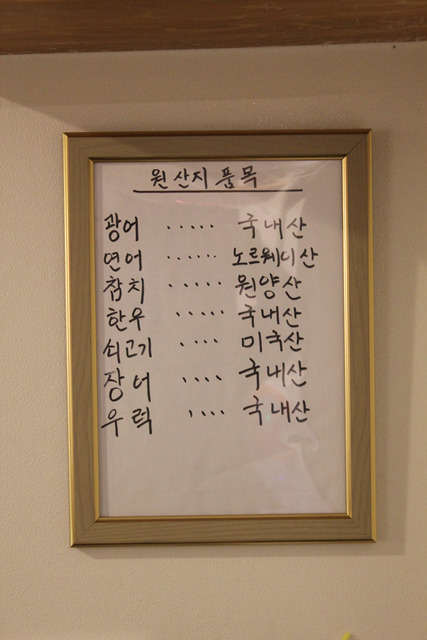 원산지 품목
광어 ..... 국내산
연어 ...... 노르웨이산
참치 ..... 원양산
한우 ..... 국내산
쇠고기 .... 미국산
장어 .... 국내산
우럭 .... 국내산